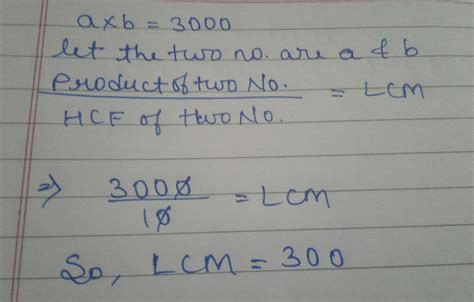 a×b = 3000
let the two no. are a & b
Product of two No. = LCM
HCF of two No.
⇒ 3000 = LCM
10
So, LCM = 300